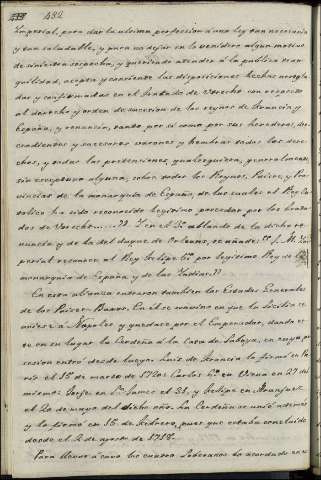 432
Imperial, para dar la ultima perfeccion á una ley tan necesaria
y tan saludable, y para no dejar en lo venidero algun motivo
de siniestra sospecha, y queriendo atender á la publica tran
quilidad, acepta y consiente las disposiciones hechas arregla
das y confirmadas en el tratado de Utrecht con respecto
al derecho y orden de sucesion de los reynos de Francia y
España, y renuncia, tanto por sí como por sus herederos, des
cendientos y sucesores varones y hembras todos los dere
chos, y todas las pretensiones, qualesquiera, generalmente
sin escepcion alguna, sobre todos los Reynos, Paises, y Pro
vincias de la monarquia de España, de las cuales el Rey Ca
tolico ha sido reconocido legitimo poseedor por los trata
dos de Utrecht
hablando de la dicha re
nuncia y de la del duque de Orleans, se añade: S. M. Im
perial reconoce al Rey Felipe 5º por legitimo Rey de la
monarquia de España y de las Indias.
En esta alianza entraron tambien los Estados Generales
de los Paises Bajos. En él se convino en que la Sicilia se
uniese á Napoles y quedase por el Emperador, dando es
te en su lugar la Cerdeña á la Casa de Saboya, en cuya po
sesion entró desde luego. Luis de Francia la firmó en Pa
ris el 15 de marzo de 1720: Carlos 6º en Viena en 27 del
mismo: Jorje en Sn. James el 31, y Felipe en Aranjuez
el 20 de mayo del dicho año. La Cerdeña se unió además
y la firmó en 16 de Febrero, pues que estaba concluido
desde el 2 de agosto de 1718.
Para llevar á cavo los cuatro Soberanos lo acordado en es